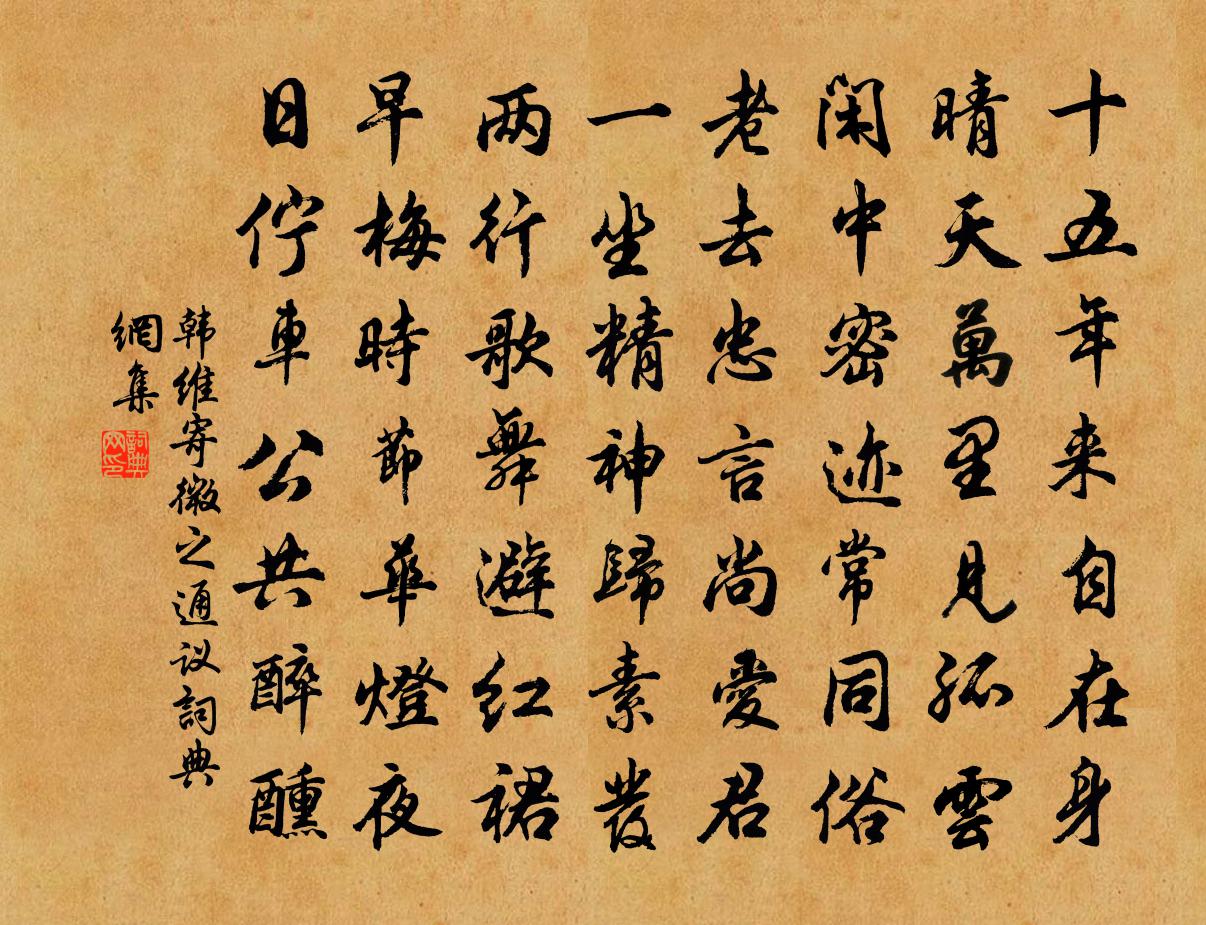 十五年来自在身
晴天萬里見孤雲
閑中密迹常同俗
老去忠言尚愛君
一坐精神歸素發
两行歌舞避红裙
早梅時節華燈夜
日佇車公共醉醺
韩维寄微之通议詞典
網集
詞典网印